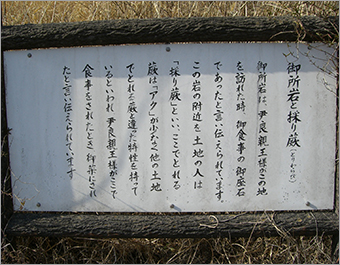 御所岩と採り蕨（とりわらび）
御所岩は、尹良親王様がこの地
を訪れた時、御食事の御座石
であったと言い伝えられています。
この岩の附近を土地の人は
「採り蕨」といい、ここでとれる
蕨は「アク」が少なく他の土地
でとれる蕨と違った特性を持って
いるといわれ、尹良親王様がここで
食事をされたとき御箸にされ
たと言い伝えられています